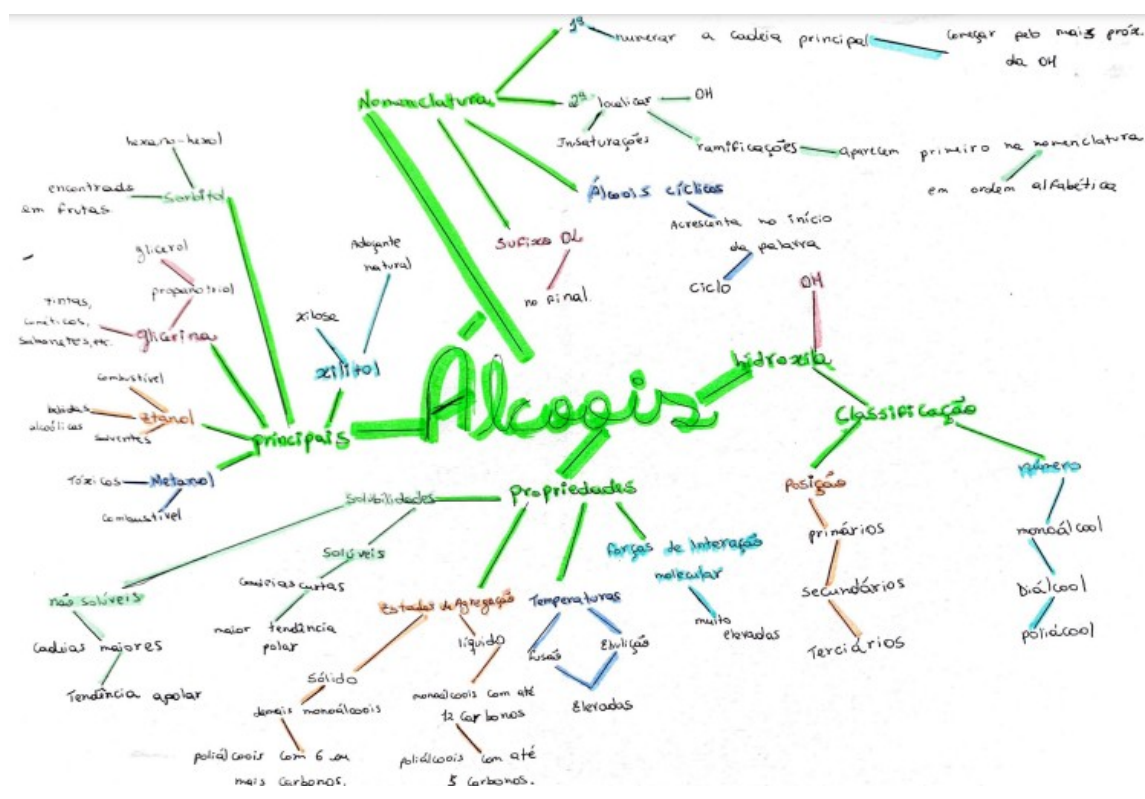 Álcoois
Nomenclatura
1º
numerar a cadeia principal
começar pelo mais próx.
da OH
2º localizar
OH
Insaturações
ramificações
aparecem primeiro na nomenclatura
em ordem alfabética
Álcoois cíclicos
Acrescenta no início
da palavra
ciclo
Sufixo OL
no final.
hidroxila
OH
Classificação
Posição
primários
secundários
Terciários
número
monoálcool
Diálcool
poliácool
Propriedades
forças de Interação
molecular
muito
elevadas
Temperaturas
fusão
Ebulição
Elevadas
Estados de Agregação
líquido
monoálcoois com até
12 carbonos
poliálcoois com até
5 carbonos.
Sólido
demais monoálcoois
poliálcoois com 6 ou
mais carbonos.
Solubilidades
Solúveis
Cadeias curtas
maior tendência
polar
não solúveis
Cadeias maiores
Tendência apolar
principais
Sorbitol
hexano-hexol
encontrado
em frutas.
glicerina
propanotriol
glicerol
Tintas,
cométicos,
sabonetes, etc.
xilitol
xilose
Adoçante
natural
Etanol
Combustível
bebidas
alcoólicas
solventes
Metanol
Tóxicos
Combustível